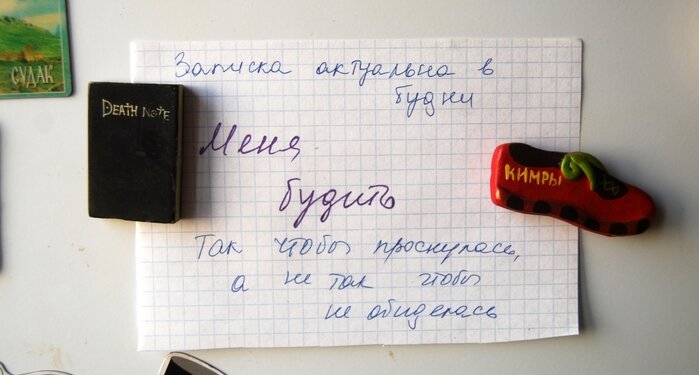 СУДАК
DEATH NOTE
Записка актуальна в
будни
Меня
будить
Так чтобы проснулась,
а не так чтобы
не обиделась
КИМРЫ